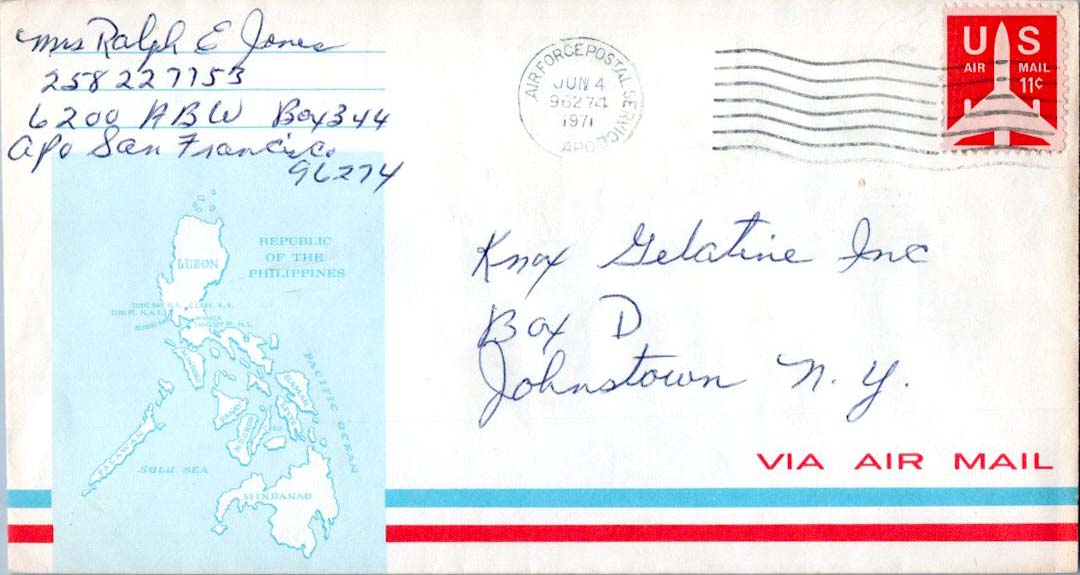 Mrs Ralph E Jones
258 22 7153
6200 ABW Box 344
APO San Francisco
96274
AIR FORCE POSTAL SERVICE
JUN 4
96274
1971
APO
U S
AIR MAIL
11¢
REPUBLIC
OF THE
PHILIPPINES
LUZON
SUBIC BAY N.S.
CLARK A.B.
CUBI PT. N.A.S.
MANILA
SANGLEY PT. N.S.
SAMAR
PALAWAN
SULU SEA
PACIFIC OCEAN
MINDANAO
Knox Gelatine Inc
Box D
Johnstown N. Y.
VIA AIR MAIL